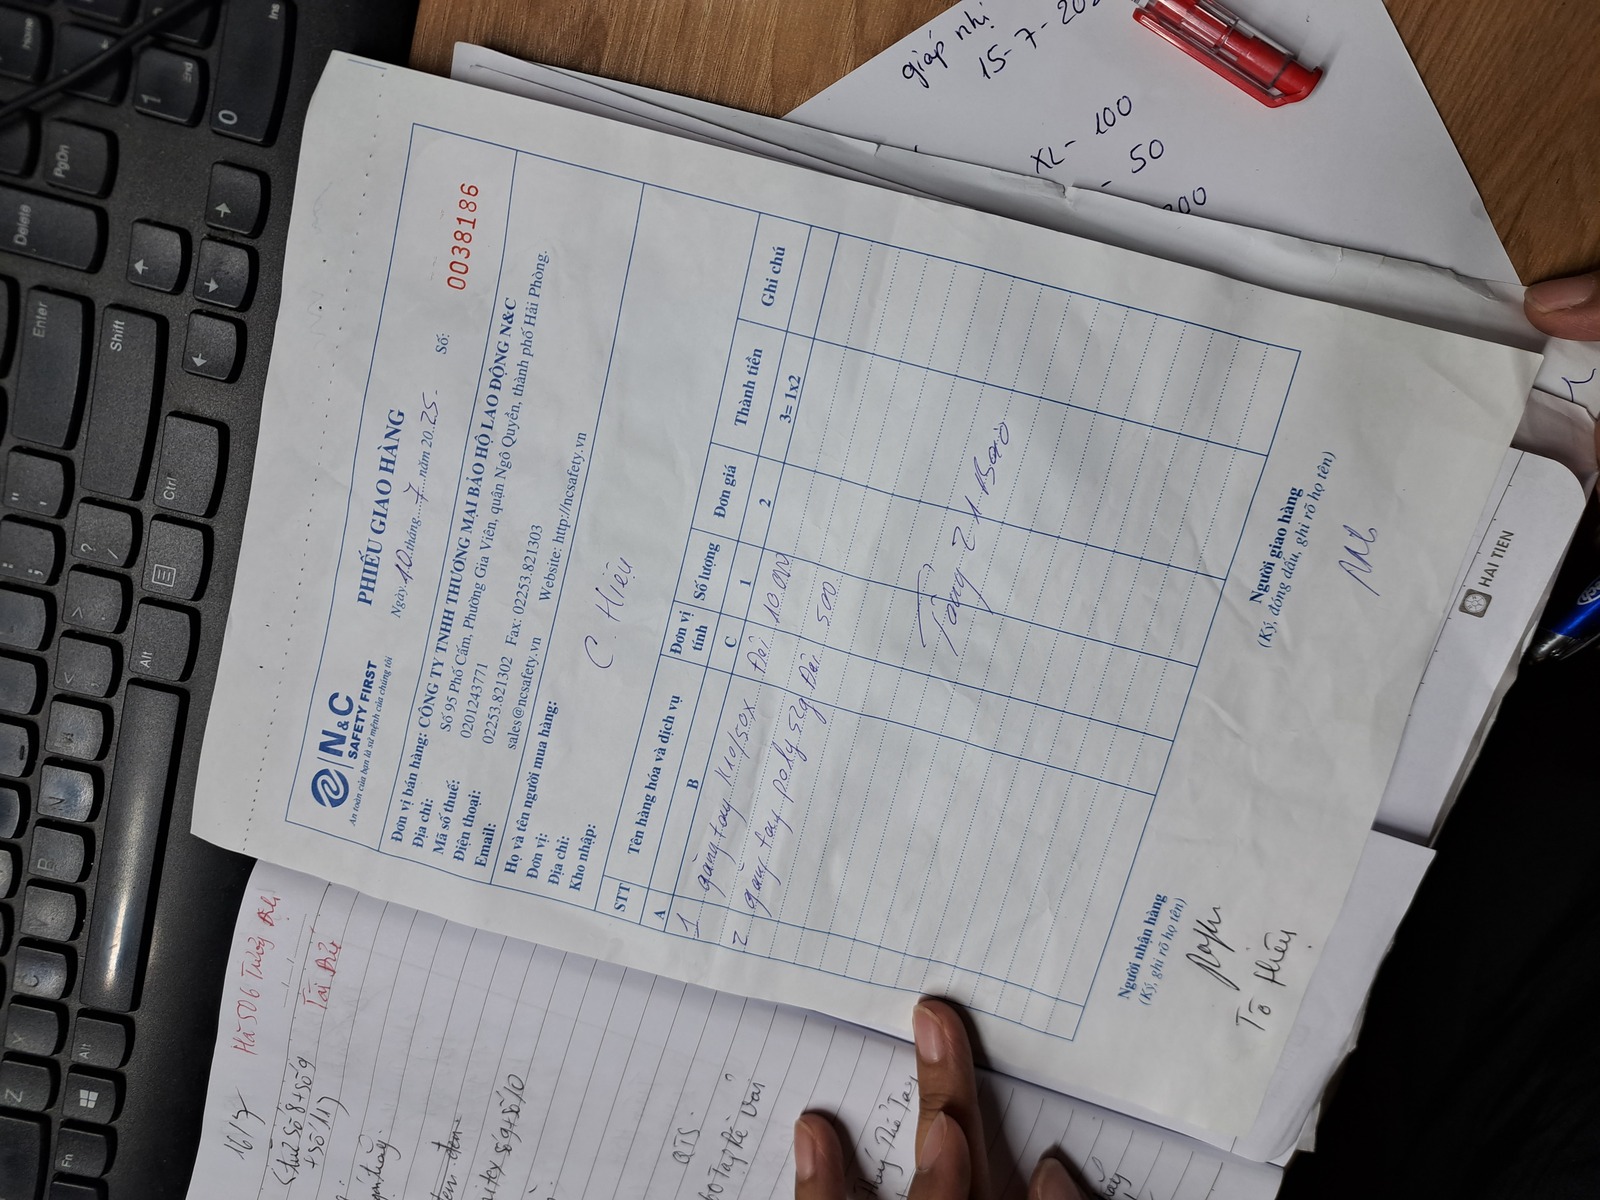 N&C
SAFETY FIRST
An toàn của bạn là sứ mệnh của chúng tôi
PHIẾU GIAO HÀNG
Ngày 10 tháng 7 năm 2025
Số: 0038186
Đơn vị bán hàng: CÔNG TY TNHH THƯƠNG MẠI BẢO HỘ LAO ĐỘNG N&C
Địa chỉ: Số 95 Phố Cấm, Phường Gia Viên, quận Ngô Quyền, thành phố Hải Phòng.
Mã số thuế: 0201243771
Điện thoại: 02253.821302 Fax: 02253.821303
Email: sales@ncsafety.vn Website: http://ncsafety.vn
Họ và tên người mua hàng:
Đơn vị: C. Hiệu
Địa chỉ:
Kho nhập:
STT Tên hàng hóa và dịch vụ Đơn vị tính Số lượng Đơn giá Thành tiền Ghi chú
A B C 1 2 3= 1x2
1 găng tay k10/50.x Đôi 10.000
2 găng tay poly 52g Đôi 500
Tổng 21 Bao
Người nhận hàng
(Ký, ghi rõ họ tên)
Tô Hiệu
Người giao hàng
(Ký, đóng dấu, ghi rõ họ tên)
giáp nhị
15-7-202
XL - 100
- 50
00
HAI TIEN
16/7
số 8 + số 9
+ số 11)
số 9 + số 10
QTS
Home
End
PgDn
Delete
Ins
1
0
Enter
Shift
Ctrl
Alt
Alt
Fn
Z
X
C
B
N